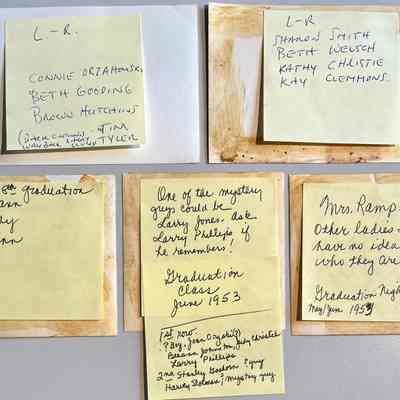 L-R.
CONNIE ORZAHOWSKI
BETH GOODING
BROWN HUTCHINS
TIM
TYLER
L-R
SHARON SMITH
BETH WELSCH
KATHY CHRISTIE
KAY CLEMMONS.
8th graduation
ann
ay
nn
One of the mystery
guys could be
Larry Jones. Ask
Larry Phillips if
he remembers!
Graduation
Class
June 1953
1st row-
? Boy, Joan
Johnston, Judy Christie
Larry Phillips
2nd Stanley ? guy
Harley ? mystery guy
Mrs. Ramp
Other ladies -
have no idea
who they are
Graduation Nigh
May/June 1953